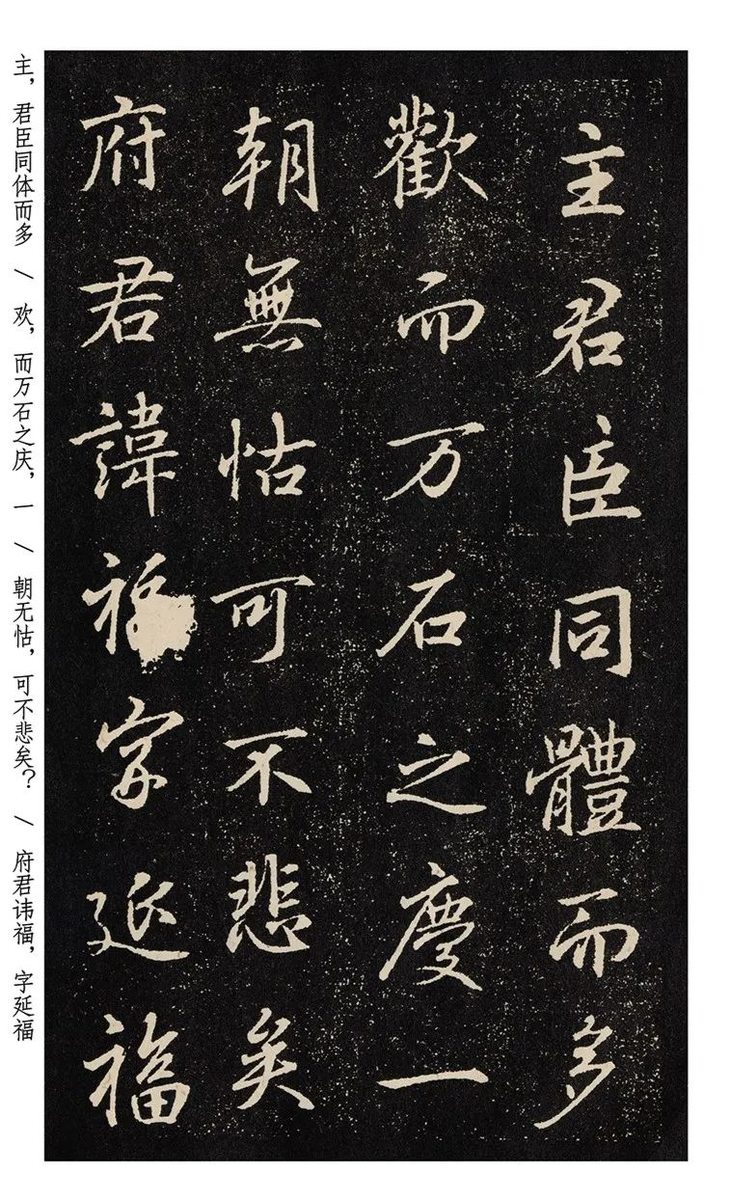 主君臣同體而多
歡而万石之慶一
朝無怙可不悲矣
府君諱福字延福
主，君臣同体而多 / 欢，而万石之庆，一 / 朝无怙，可不悲矣？ / 府君讳福，字延福